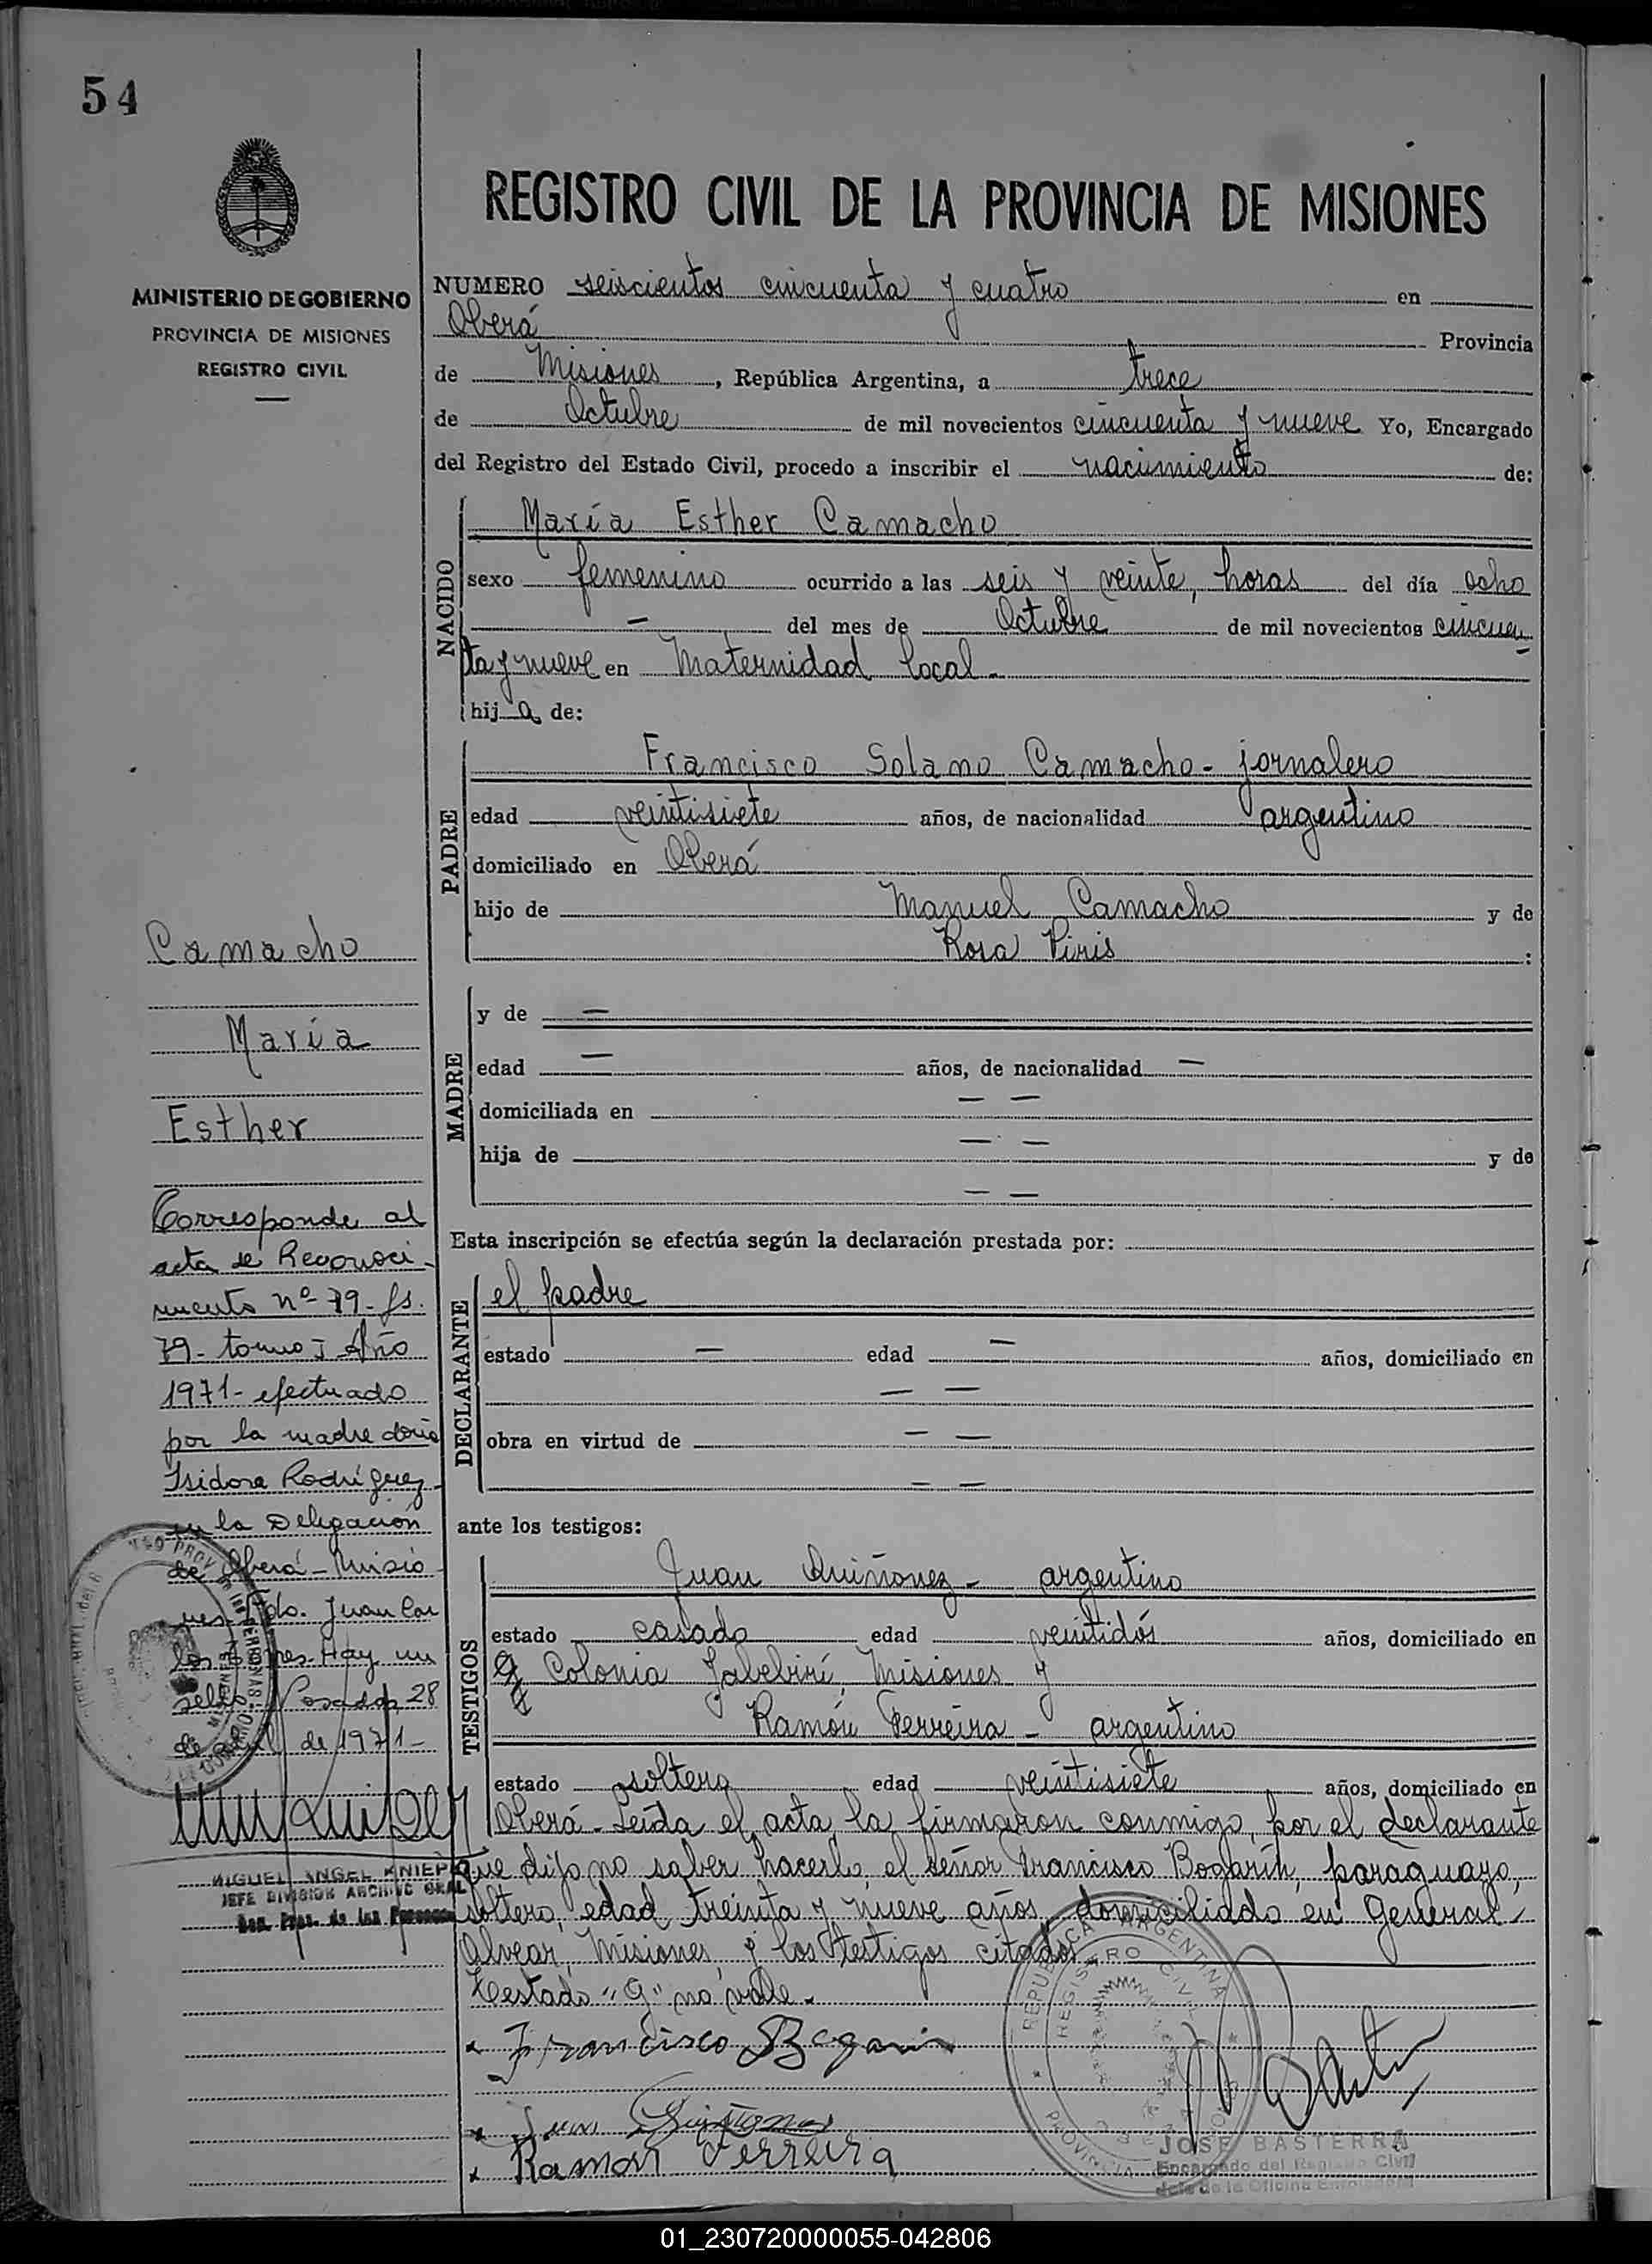 54
MINISTERIO DE GOBIERNO
PROVINCIA DE MISIONES
REGISTRO CIVIL
REGISTRO CIVIL DE LA PROVINCIA DE MISIONES
NUMERO seiscientos cincuenta y cuatro en
Oberá Provincia
de Misiones, República Argentina, a trece
de Octubre de mil novecientos cincuenta y nueve Yo, Encargado
del Registro del Estado Civil, procedo a inscribir el nacimiento de:
NACIDO
María Esther Camacho
sexo femenino ocurrido a las seis y veinte, horas del día ocho
— del mes de Octubre de mil novecientos cincuen
ta y nueve en Maternidad local.
hija de:
PADRE
Francisco Solano Camacho - jornalero
edad veintisiete años, de nacionalidad argentino
domiciliado en Oberá
hijo de Manuel Camacho y de
Rosa Piris :
MADRE
y de —
edad — años, de nacionalidad —
domiciliada en — —
hija de — — y de
— —
Esta inscripción se efectúa según la declaración prestada por:
DECLARANTE
el padre
estado — edad — años, domiciliado en
— —
obra en virtud de — —
— —
ante los testigos:
TESTIGOS
Juan Quiñonez - argentino
estado casado edad veintidós años, domiciliado en
g Colonia Yabebirí, Misiones y
Ramón Ferreira - argentino
estado soltero edad veintisiete años, domiciliado en
Oberá - Leída el acta, la firmaron conmigo, por el declarante
que dijo no saber hacerlo, el señor Francisco Bogarín, paraguayo,
soltero, edad treinta y nueve años, domiciliado en General
Alvear, Misiones, y los testigos citados
Testado "g" no vale.
Francisco Bogarin
Juan Quiñones
Ramon Ferreira
REPUBLICA ARGENTINA
REGISTRO CIVIL
JOSE BASTERRA
Encargado del Registro Civil
Jefe de la Oficina Enroladora
Camacho
María
Esther
Corresponde al
acta de Reconoci-
miento nº 79 - fs.
79 - tomo I Año
1971 - efectuado
por la madre doña
Isidora Rodríguez
en la Delegación
de Oberá - Misio
nes - Fdo. Juan Car
los Hay un
sello Posadas, 28
de abril de 1971 -
MIGUEL ANGEL KNIEP
JEFE DIVISION ARCHIVO GRAL
Gen. Prov. de las Personas
01_230720000055-042806